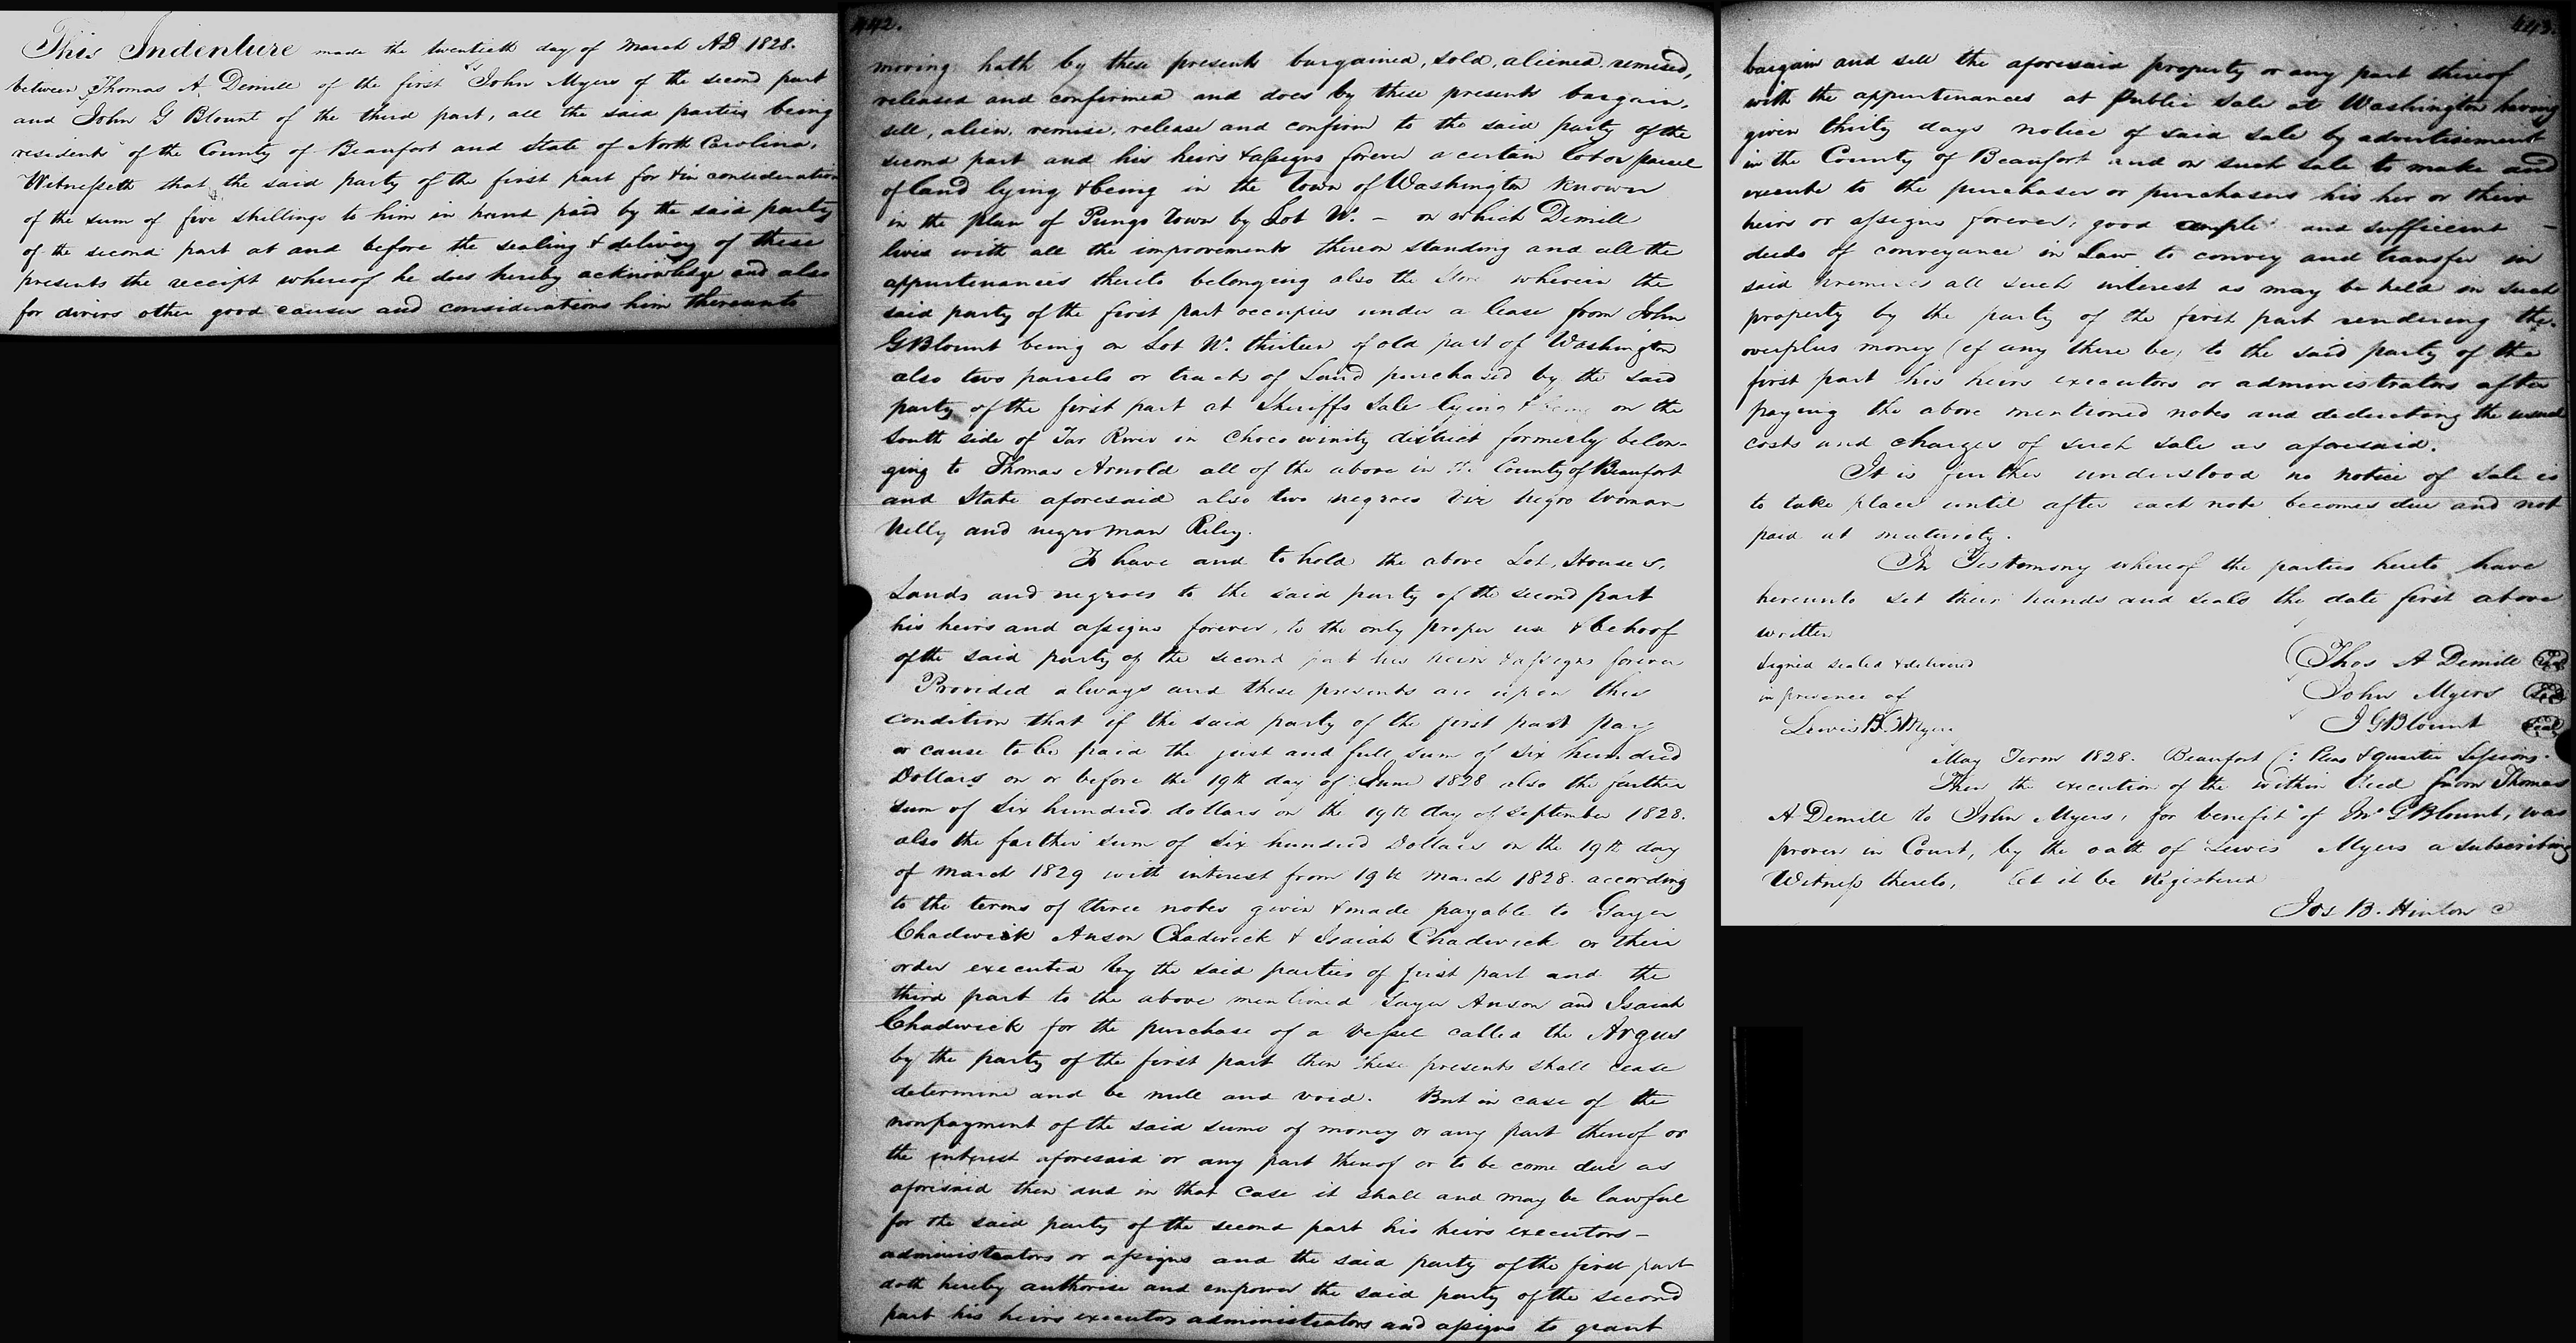 This Indenture made the twentieth day of March AD 1828.
between Thomas A. Demill of the first pt John Myers of the second part
and John G Blount of the third part, all the said parties being
residents of the County of Beaufort and State of North Carolina,
Witnesseth that the said party of the first part for & in consideration
of the sum of five shillings to him in hand paid by the said party
of the second part at and before the sealing & delivery of these
presents the receipt whereof he does hereby acknowledge and also
for divers other good causes and considerations him thereunto
442.
moving hath by these presents bargained, sold, aliened, remised,
released and confirmed and does by these presents bargain,
sell, alien, remise, release and confirm to the said party of the
second part and his heirs & assigns forever a certain lot or parcel
of land lying & being in the Town of Washington known
in the plan of Pungo Town by Lot No. – on which Demill
lives with all the improovements thereon standing and all the
appurtenances thereto belonging also the Store wherein the
said party of the first part occupies under a lease from John
G Blount being on Lot No. thirteen of old part of Washington
also two parcels or tracts of Land purchased by the said
party of the first part at Sheriffs Sale lying & being on the
South side of Tar River in Chocowinity district formerly belon-
ging to Thomas Arnold all of the above in the County of Beaufort
and State aforesaid also two negroes Viz negro woman
Nelly and negro man Riley.
To have and to hold the above Lot, Houses,
Lands and negroes to the said party of the second part
his heirs and assigns forever, to the only proper use & behoof
of the said party of the second part his heirs & assigns forever
Provided always and these presents are upon this
condition that if the said party of the first part pay
or cause to be paid the just and full sum of Six hundred
Dollars on or before the 19th day of June 1828 also the farther
sum of Six hundred dollars on the 19th day of September 1828.
also the farther sum of Six hundred Dollars on the 19th day
of March 1829 with interest from 19th March 1828. according
to the terms of three notes given & made payable to Gayer
Chadwick Anson Chadwick & Isaiah Chadwick or their
order executed by the said parties of first part and the
third part to the above mentioned Gayer Anson and Isaiah
Chadwick for the purchase of a Vessel called the Argus
by the party of the first part then these presents shall cease
determine and be null and void. But in case of the
nonpayment of the said sums of money or any part thereof or
the interest aforesaid or any part thereof or to be come due as
aforesaid then and in that case it shall and may be lawful
for the said party of the second part his heirs executors –
administrators or assigns and the said party of the first part
doth hereby authorise and empower the said party of the second
part his heirs executors administrators and assigns to grant
443.
bargain and sell the aforesaid property or any part thereof
with the appurtenances at Public Sale at Washington having
given thirty days notice of said Sale by advertisement
in the County of Beaufort and on such sale to make and
execute to the purchaser or purchasers his her or their
heirs or assigns forever, good ample and sufficient –
deeds of conveyance in Law to convey and transfer in
said premises all such interest as may be held in such
property by the party of the first part rendering the
overplus money (if any there be) to the said party of the
first part his heirs executors or administrators after
paying the above mentioned notes and deducting the usual
costs and charges of such sale as aforesaid.
It is further understood no notice of Sale is
to take place until after each note becomes due and not
paid at maturity.
In Testimony whereof the parties hereto have
hereunto set their hands and seals the date first above
written
Signed sealed & delivered
in presence of
Lewis B. Myers
Thos A Demill Seal
John Myers Seal
J G Blount Seal
May Term 1828. Beaufort C: Pleas & quarter Sessions.
Then the execution of the within Deed from Thomas
A Demill to John Myers, for benefit of Jno G Blount, was
proven in Court, by the oath of Lewis Myers a subscribing
Witness thereto, Let it be Registered
Jos. B. Hinton C